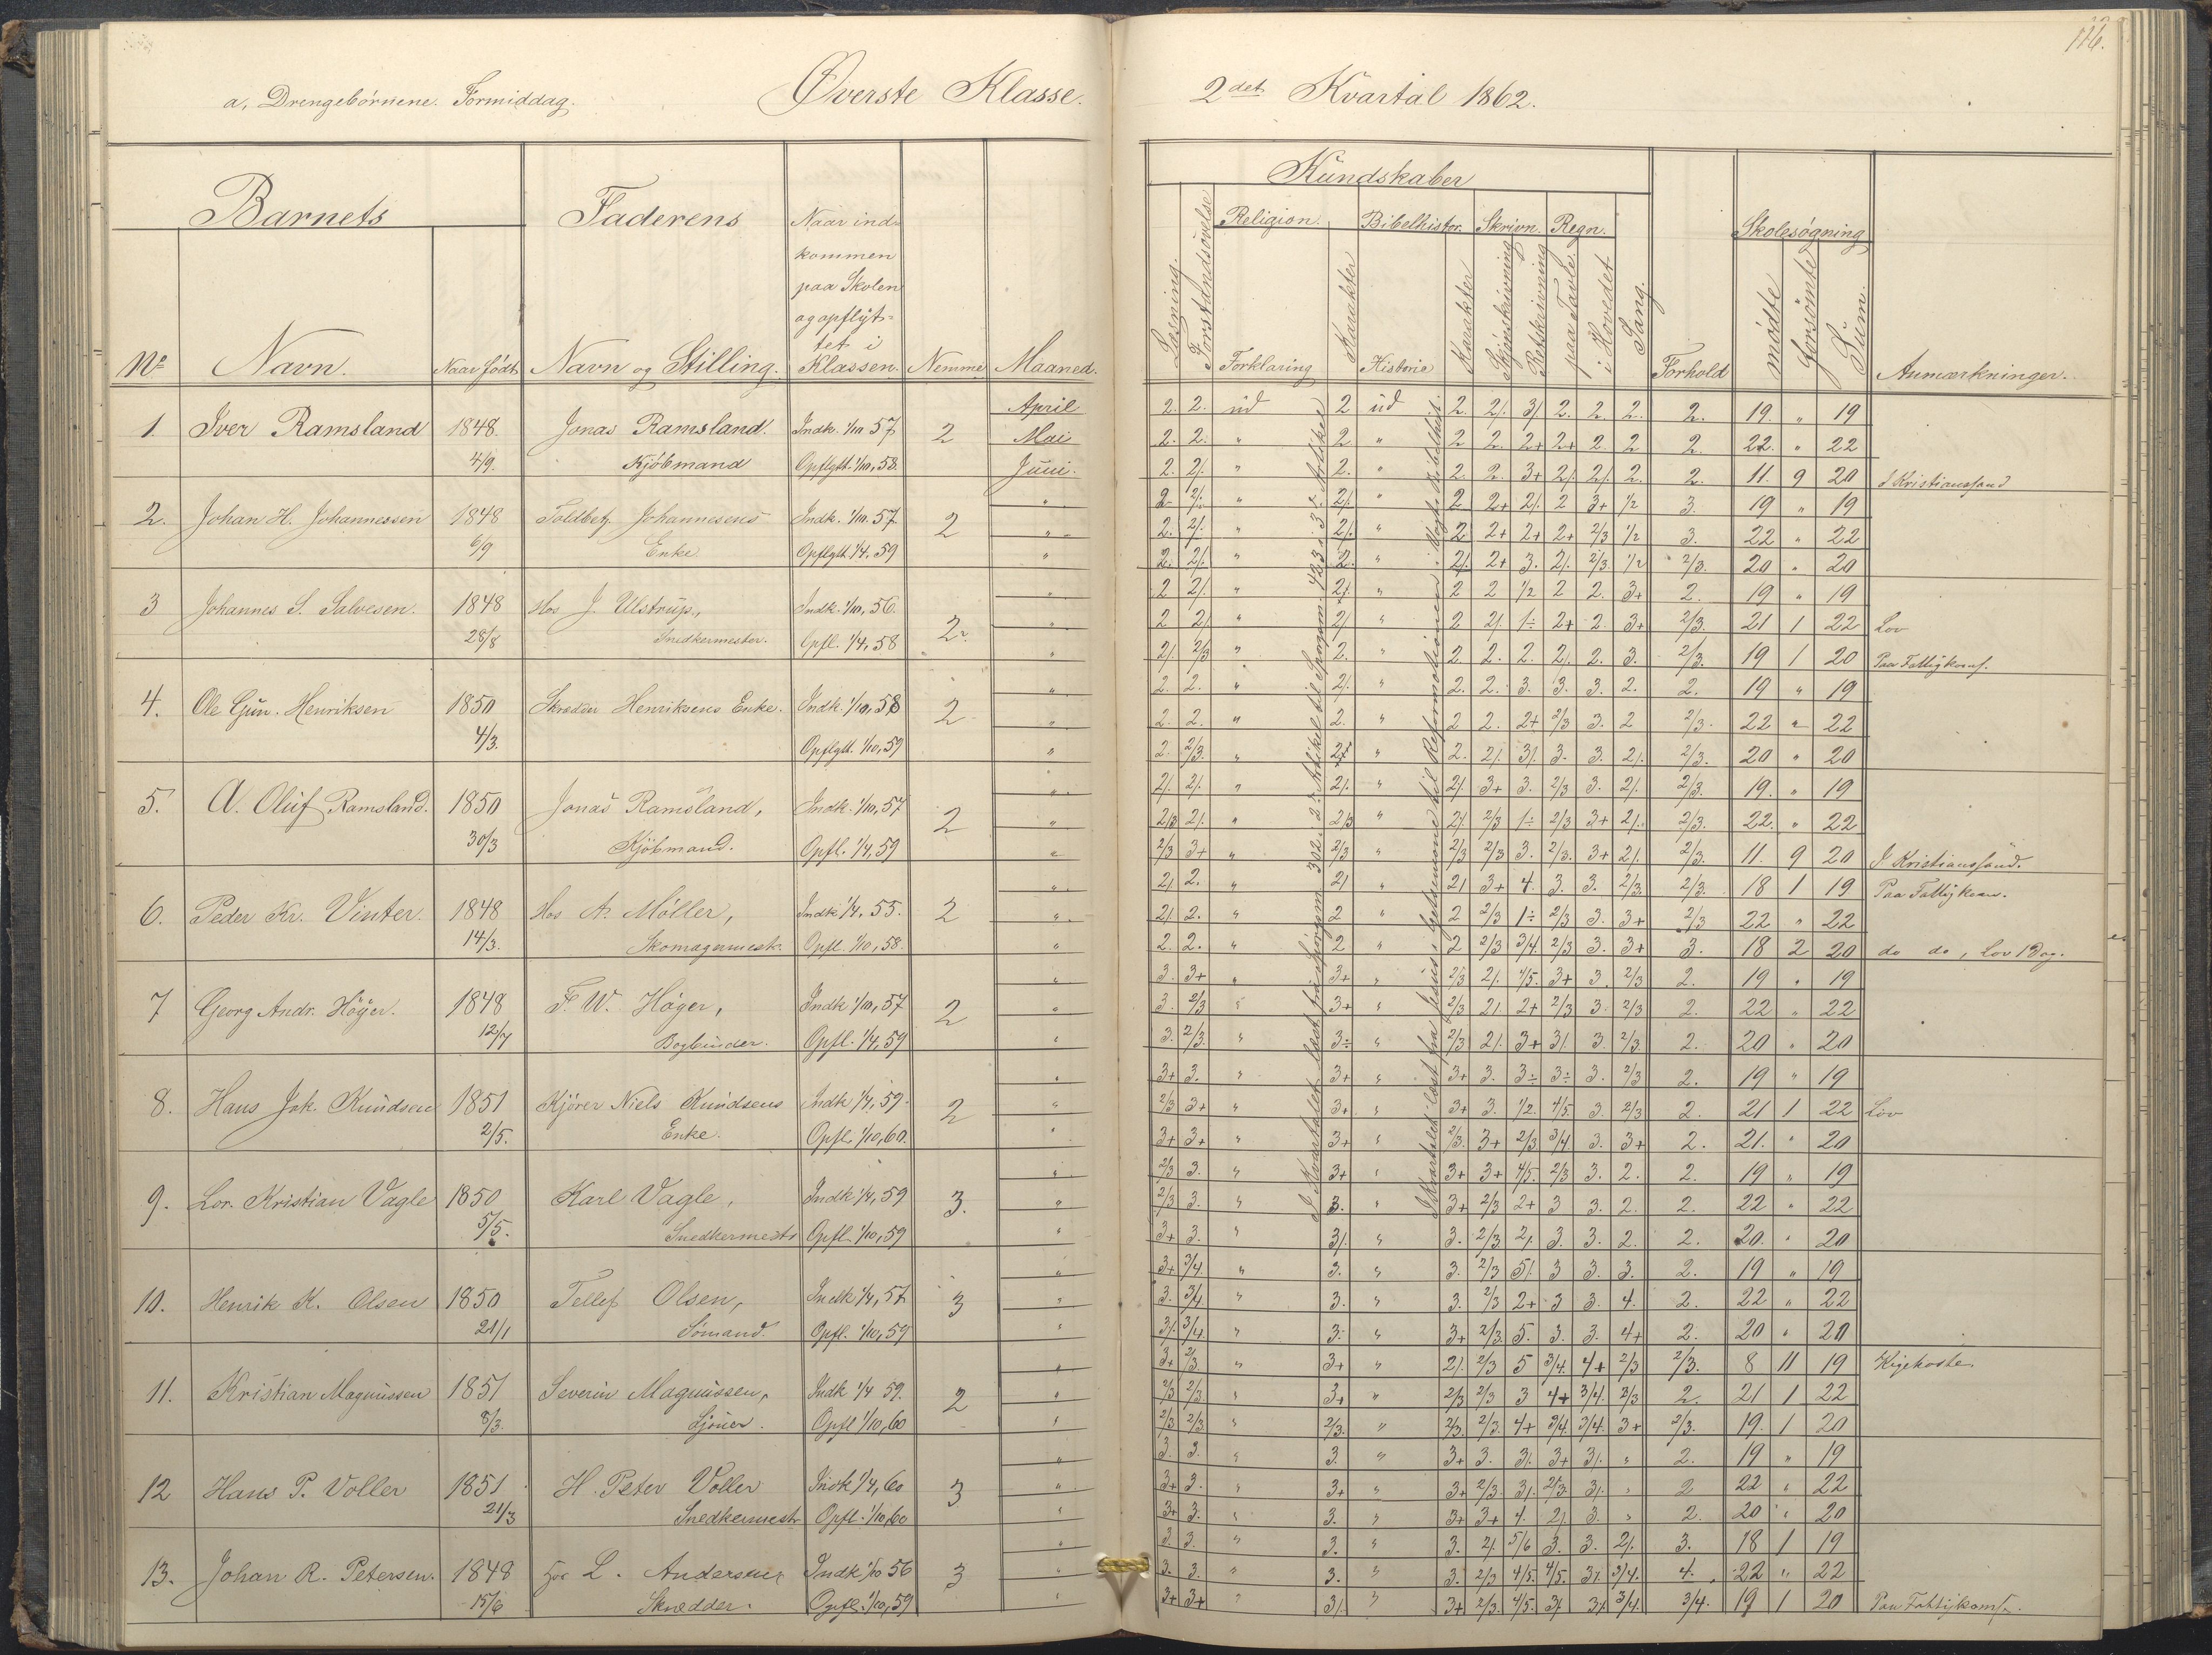 116.
a, Drengebørnene. Formiddag.
Øverste Klasse.
2det Kvartal 1862.
Barnets
Faderens
Naar ind-
kommen
paa Skolen
og opflyt-
tet i
Klassen.
No
Navn.
Naar født
Navn og Stilling.
Nemme
Maaned.
Kundskaber
Læsning.
Forstandsøvelse
Religion.
Forklaring
Karakter
Bibelhistor.
Historie
Karakter
Skrivn.
Skjønskrivning
Retskrivning
Regn.
paa Tavle.
i Hovedet
Sang.
Forhold
Skolesøgning
mødte
forsømte
Sum.
Anmærkninger.
1. Iver Ramsland 1848. Jonas Ramsland. Indk. 1/10 57 2 April
4/9. Kjøbmand Opflytt. 1/10, 58. Mai
Juni.
2. Johan H. Johannessen 1848 Toldbetj. Johannesens Indk. 1/10. 57 2
6/9 Enke Opflytt. 1/4. 59
3 Johannes S. Salvesen. 1848 Hos J. Ulstrup, Indk. 1/10, 56. 2
28/8 Snedkermester. Opfl. 1/4, 58
4. Ole Gun. Henriksen 1850 Skræder Henriksens Enke. Indk. 1/10, 58 2
4/3. Opflytt. 1/10, 59
5. A. Oluf Ramsland. 1850 Jonas Ramsland, Indk. 1/10, 57 2
30/3 Kjøbmand. Opfl. 1/4, 59
6. Peder Kr. Vinter. 1848 Hos A. Møller, Indk. 1/4, 55. 2
14/3. Skomagermest. Opfl. 1/10, 58.
7 Georg Andr. Høyer. 1848 F. W. Høger, Indk. 1/10, 57 2
12/7 Bogbinder. Opfl. 1/4, 59
8. Hans Joh. Knudsen 1851 Kjører Niels Knudsens Indk 1/4, 59. 2
2/5. Enke. Opfl. 1/10, 60.
9. Lor. Kristian Vagle 1850 Karl Vagle, Indk 1/4, 59 3.
5/5. Snedkermestr Opfl. 1/10, 59
10. Henrik K. Olsen 1850 Tellef Olsen, Indk 1/4, 57 3
21/1 Sømand. Opfl. 1/10, 59
11. Kristian Magnussen 1851 Severin Magnussen, Indk 1/4 59. 2
8/3. Sjouer. Opfl 1/10, 60
12 Hans P. Voller 1851 H. Peter Voller Indk 1/4, 60 3
21/3 Snedkermestr Opfl. 1/10, 60
13. Johan R. Petersen. 1848 hos L. Andersen Indk 1/10 56 3
15/6 Skredder. Opfl. 1/10, 59
2. 2. ud 2 ud 2. 2/. 3/. 2. 2. 2. 2. 19. " 19
2. 2. " 2 " 2 2. 2+ 2+ 2. 2 2. 22. " 22
2. 2/. " 2. " 2. 2. 3+ 2/. 2/. 2. 2. 11. 9 20 I Kristianssand
2 2/. " 2/. " 2 2+ 2/. 2 3+ 1/2 3. 19 " 19
2. 2/. " 2/. " 2 2+ 2+ 2+ 2/3 1/2 3. 22 " 22
2. 2/. " 2. " 2/. 2+ 3. 2/. 2/3. 1/2 2/3. 20 " 20
2 2/. " 2/. " 2 2 1/2 2 2. 3+ 2. 19 " 19
2 2/. " 2/. " 2 2/. 1÷ 2+ 2 3+ 2/3. 21 1 22 Lov
2/. 2/3 " 2. " 2. 2. 2. 2/. 2. 3. 2/3. 19 1 20 Paa Fattigkoms.
2. 2. " 2/. " 2. 2. 3. 3. 3. 2. 2. 19 " 19
2. 2. " 2. " 2 2. 2+ 2/3 3. 2 2/3. 22 " 22
2. 2/3. " " 2. 2/. 3/. 3. 3. 2/. 2/3. 20 " 20
2/. 2/. " 2/. " 2/. 3+ 3. 2/3 3. 2/. 2/3. 19. " 19
2/3 2/. " 2/3 " 2/. 2/3 1÷ 2/3 3+ 2/. 2/3. 22. " 22
2/3 3+ " 2/3 " 2/3 2/3 3. 2/3. 3+ 2/. 2/3. 11. 9 20 I Kristianssand.
2/. 2. " 2/ " 2/ 3+ 4. 3. 3. 2/3. 2/3. 18 1 19 Paa Fattigkom.
2/. 2. " 2 " 2 2/3 1÷ 2/3 3. 3+ 2/3 22 " 22
2. 2. " 2 " 2 2/3 3/4. 2/3 3. 3+ 3. 18 2 20 do do, Lov 1 Dag.
3. 3+ " 3+ " 2/3 2/. 4/5. 3+ 3. 2/3 2. 19 " 19
3. 2/3 " 3+ " 2/3 2/. 2+ 2/3 3. 2/3 2. 22 " 22
3. 2/3. " 3÷ " 2/3 2/. 3+ 3/. 3. 2/3. 2. 20 " 20
3+ 3. " 3+ " 3+ 3. 3÷ 3÷ 3. 2/3 2. 19 " 19
2/3 3+ " 3+ " 3+ 3. 1/2. 4/5. 3. 2/3 2. 21 1 22 Lov
3+ 3+ " 3+ " 2/3. 3+ 2/3 3/4. 3. 3+ 2. 21. " 20
2/3 3. " 3+ " 3+ 3+ 4/5. 2/3 3. 2. 2. 19 " 19
2/3 3. " 3. " 3+ 2/3 2+ 3 3. 2. 2. 22 " 22
3+ 3. " 3/. " 3. 2/3 2/. 3. 3. 2. 2. 20. " 20
3+ 3/4. " 3. " 3. 2/3 5/. 3 3. 3. 2. 19 " 19
3. 3/4. " 3. " 3. 2/3 2+ 3 3. 4. 2. 22 " 22
3/. 3/4. " 3. " 3+ 2/3. 5. 3. 3. 4+ 2. 20 " 20
3+ 2/3 " 3+ " 2/. 2/3 5 3/4. 4+ 2/3 2/3. 8 11 19 Kigehoste.
2/3 2/3 " 3+ " 2/3 2/3 3 4+ 3/4. 2/3 2. 21 1 22
2/3 2/3 " 2/3. " 2/3. 2/3. 4+ 3/4. 3/4. 3+ 2/3. 19. 1 20
3. 3. " 3. " 3+ 3. 3/. 3+ 3/. " 2. 19 " 19
3+ 3. " 3+ " 3+ 2/3. 3/. 2/3. 3/. " 2 22 " 22
3+ 3. " 3. " 3+ 3+ 4. 2/. 3. " 2. 20 " 20
3. 3. " 3. " 3. 2/. 5/6 3. 3. 2/. 3. 18 1 19
3. 3. " 3. " 3. 2/3 4/5. 4/5. 3/. 3/4. 4. 22 " 22
3+ 3+ " 3/. " 3+ 2/3. 4/5. 3/. 3/. 3/4. 3/4. 19 1 20 Paa Fattigkoms.